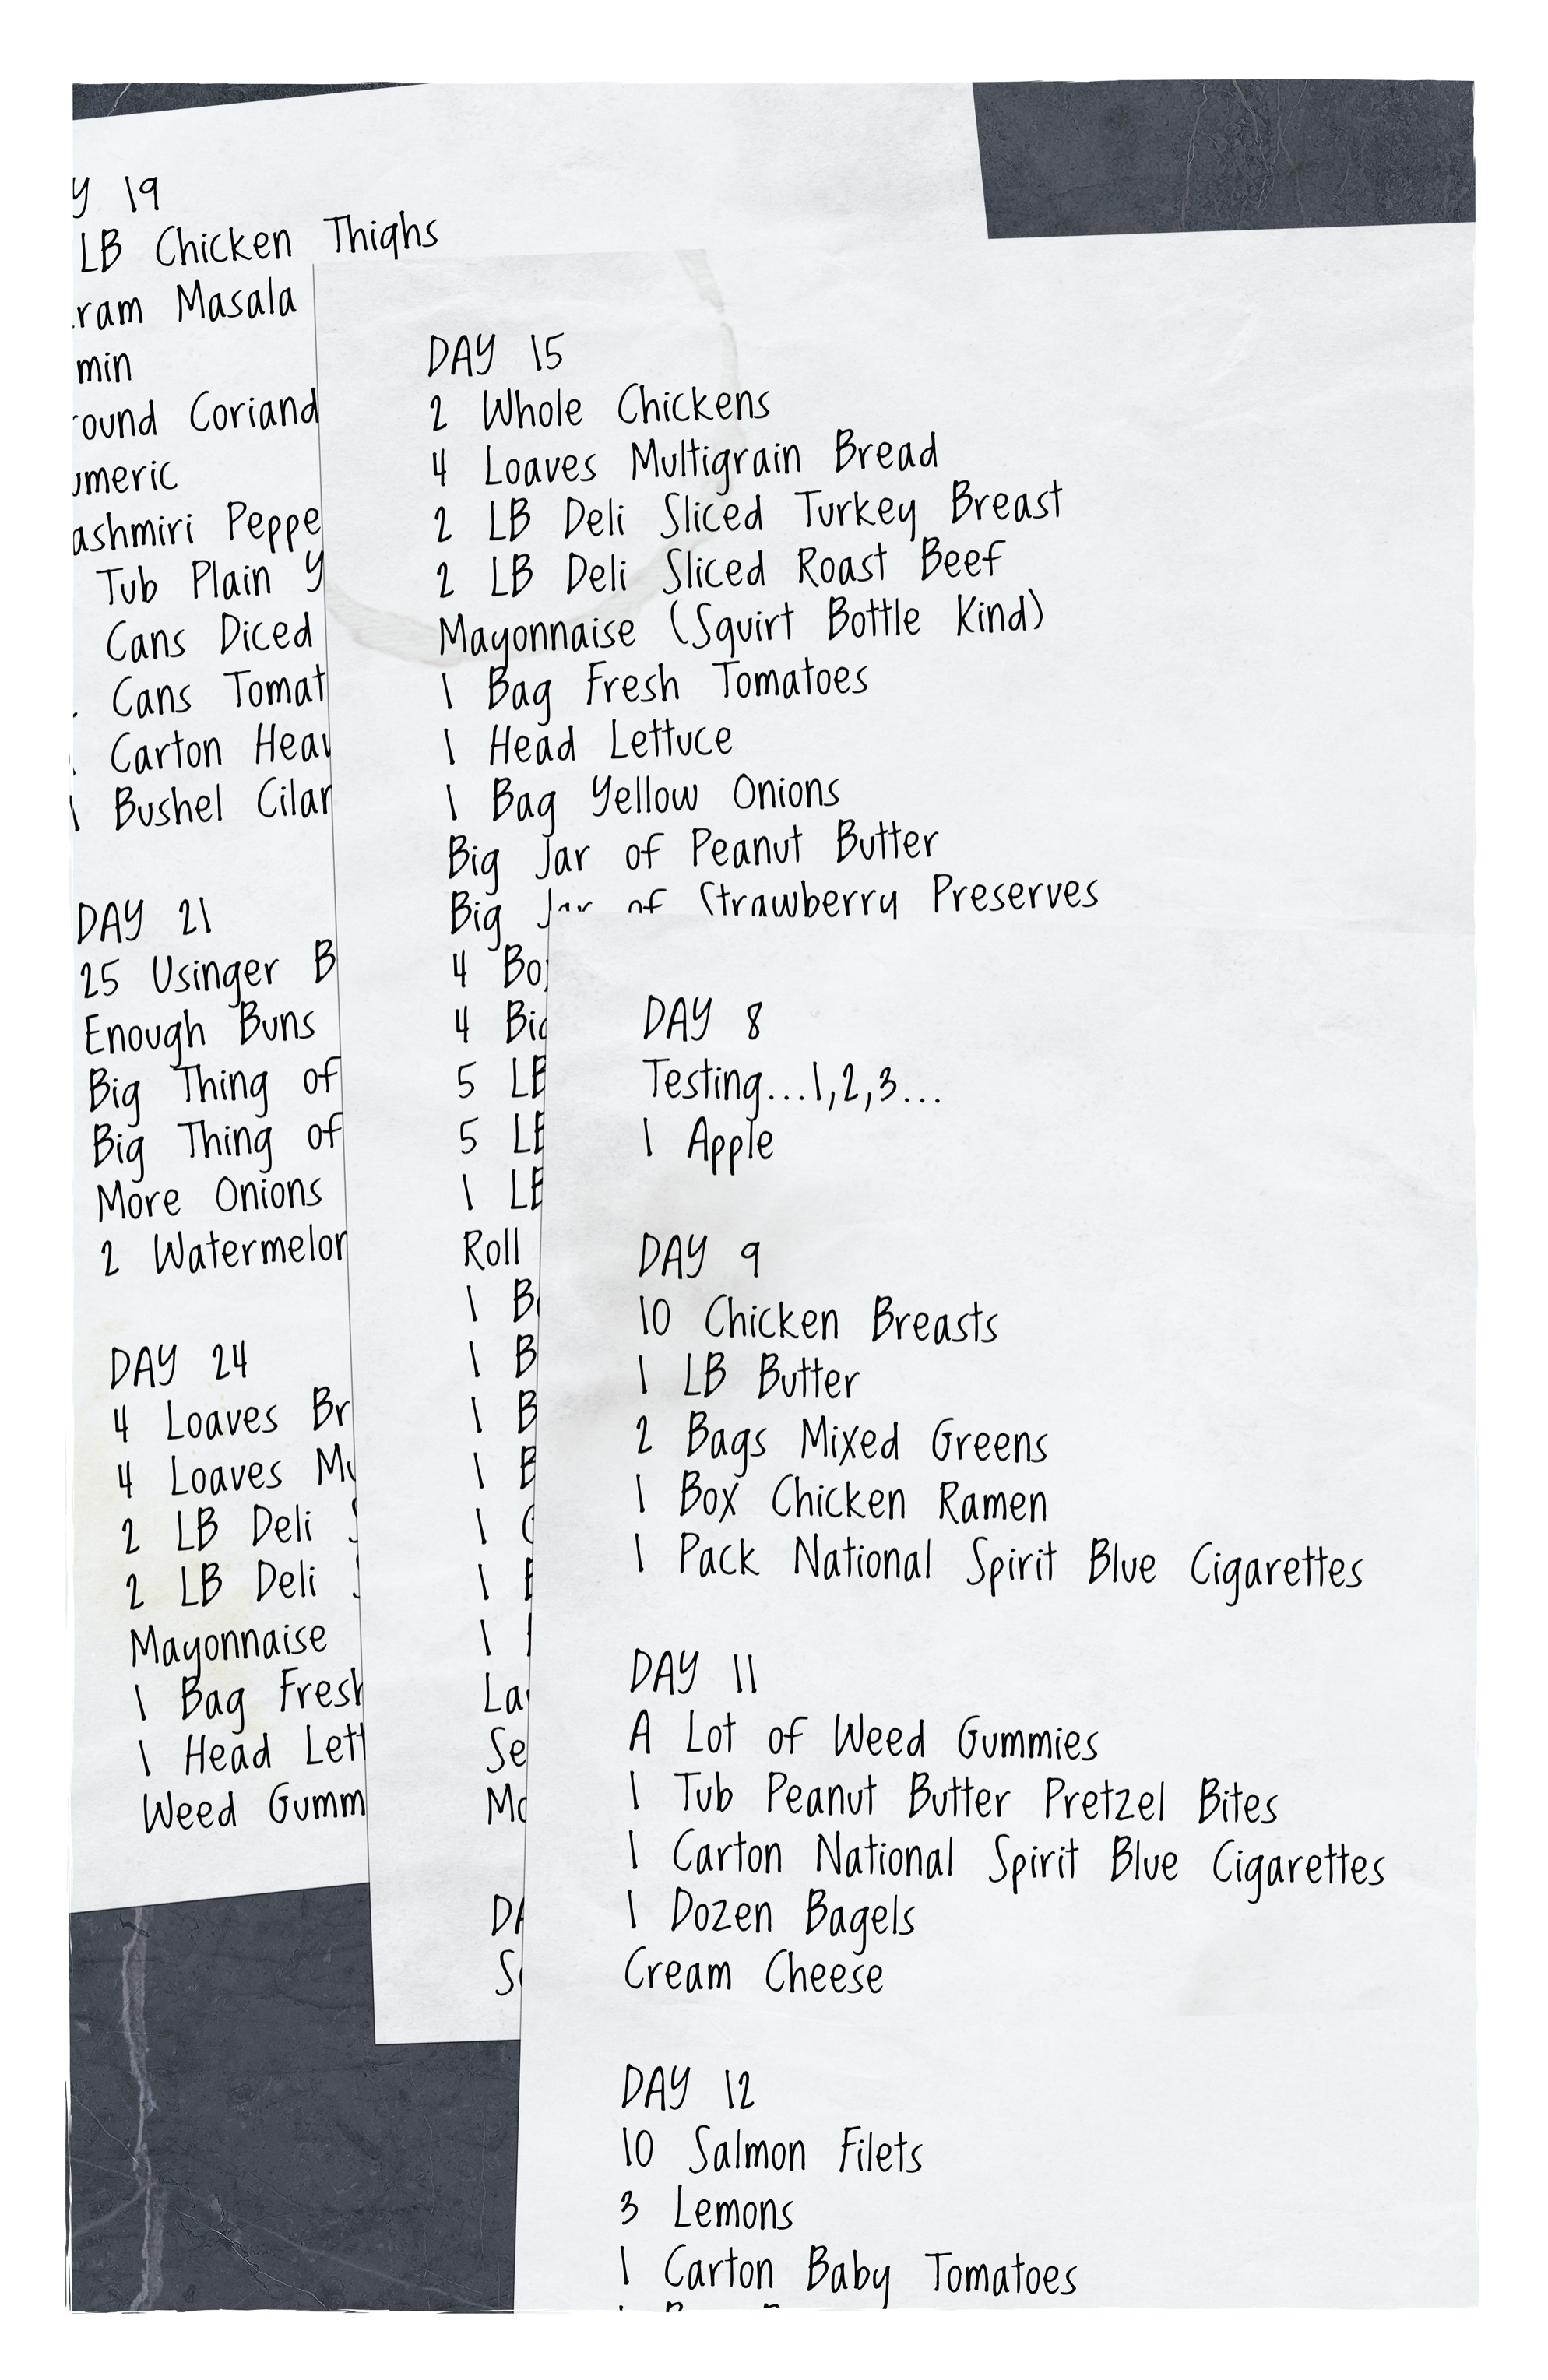 19
LB Chicken Thighs
Masala
Tub Plain
Cans Diced
Cans
Carton
1 Bushel
DAY 21
25 Usinger
Enough Buns
Big Thing of
Big Thing of
More Onions
2
DAY 24
4 Loaves
4 Loaves
2 LB Deli
2 LB Deli
Mayonnaise
1 Bag
1 Head
Weed
DAY 15
2 Whole Chickens
4 Loaves Multigrain Bread
2 LB Deli Sliced Turkey Breast
2 LB Deli Sliced Roast Beef
Mayonnaise (Squirt Bottle Kind)
1 Bag Fresh Tomatoes
1 Head Lettuce
1 Bag Yellow Onions
Big Jar of Peanut Butter
Big Jar of Strawberry Preserves
4
4
5
5
1
Roll
1
1
1
1
1
1
1
DAY 8
Testing...1,2,3...
1 Apple
DAY 9
10 Chicken Breasts
1 LB Butter
2 Bags Mixed Greens
1 Box Chicken Ramen
1 Pack National Spirit Blue Cigarettes
DAY 11
A Lot of Weed Gummies
1 Tub Peanut Butter Pretzel Bites
1 Carton National Spirit Blue Cigarettes
1 Dozen Bagels
Cream Cheese
DAY 12
10 Salmon Filets
3 Lemons
1 Carton Baby Tomatoes